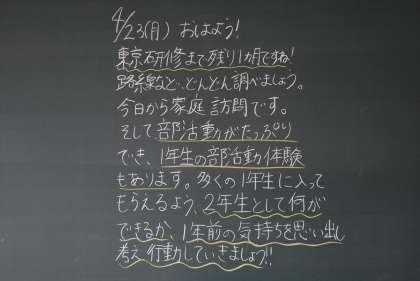 4/23(月) おはよう!
東京研修まで残り1か月ですね!
路線など、どんどん調べましょう。
今日から家庭訪問です。
そして部活動がたっぷり
でき、1年生の部活動体験
もあります。多くの1年生に入って
もらえるよう、2年生として何が
できるか、1年前の気持ちを思い出し
考え行動していきましょう!!